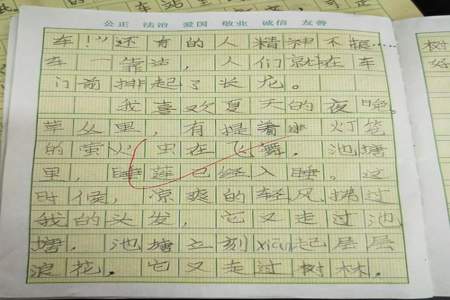 公正 法治 爱国 敬业 诚信 友善
车!”还有的人精神不振……
车一靠站,人们就在车
门前排起了长龙。
我喜欢夏天的夜晚。
草丛里,有提着小灯笼
的萤火虫在飞舞。池塘
里,睡莲已经入睡。这
时候,凉爽的轻风拂过
我的头发,它又走过池
塘,池塘立刻xiān起层层
浪花。它又走过树林。
树
好